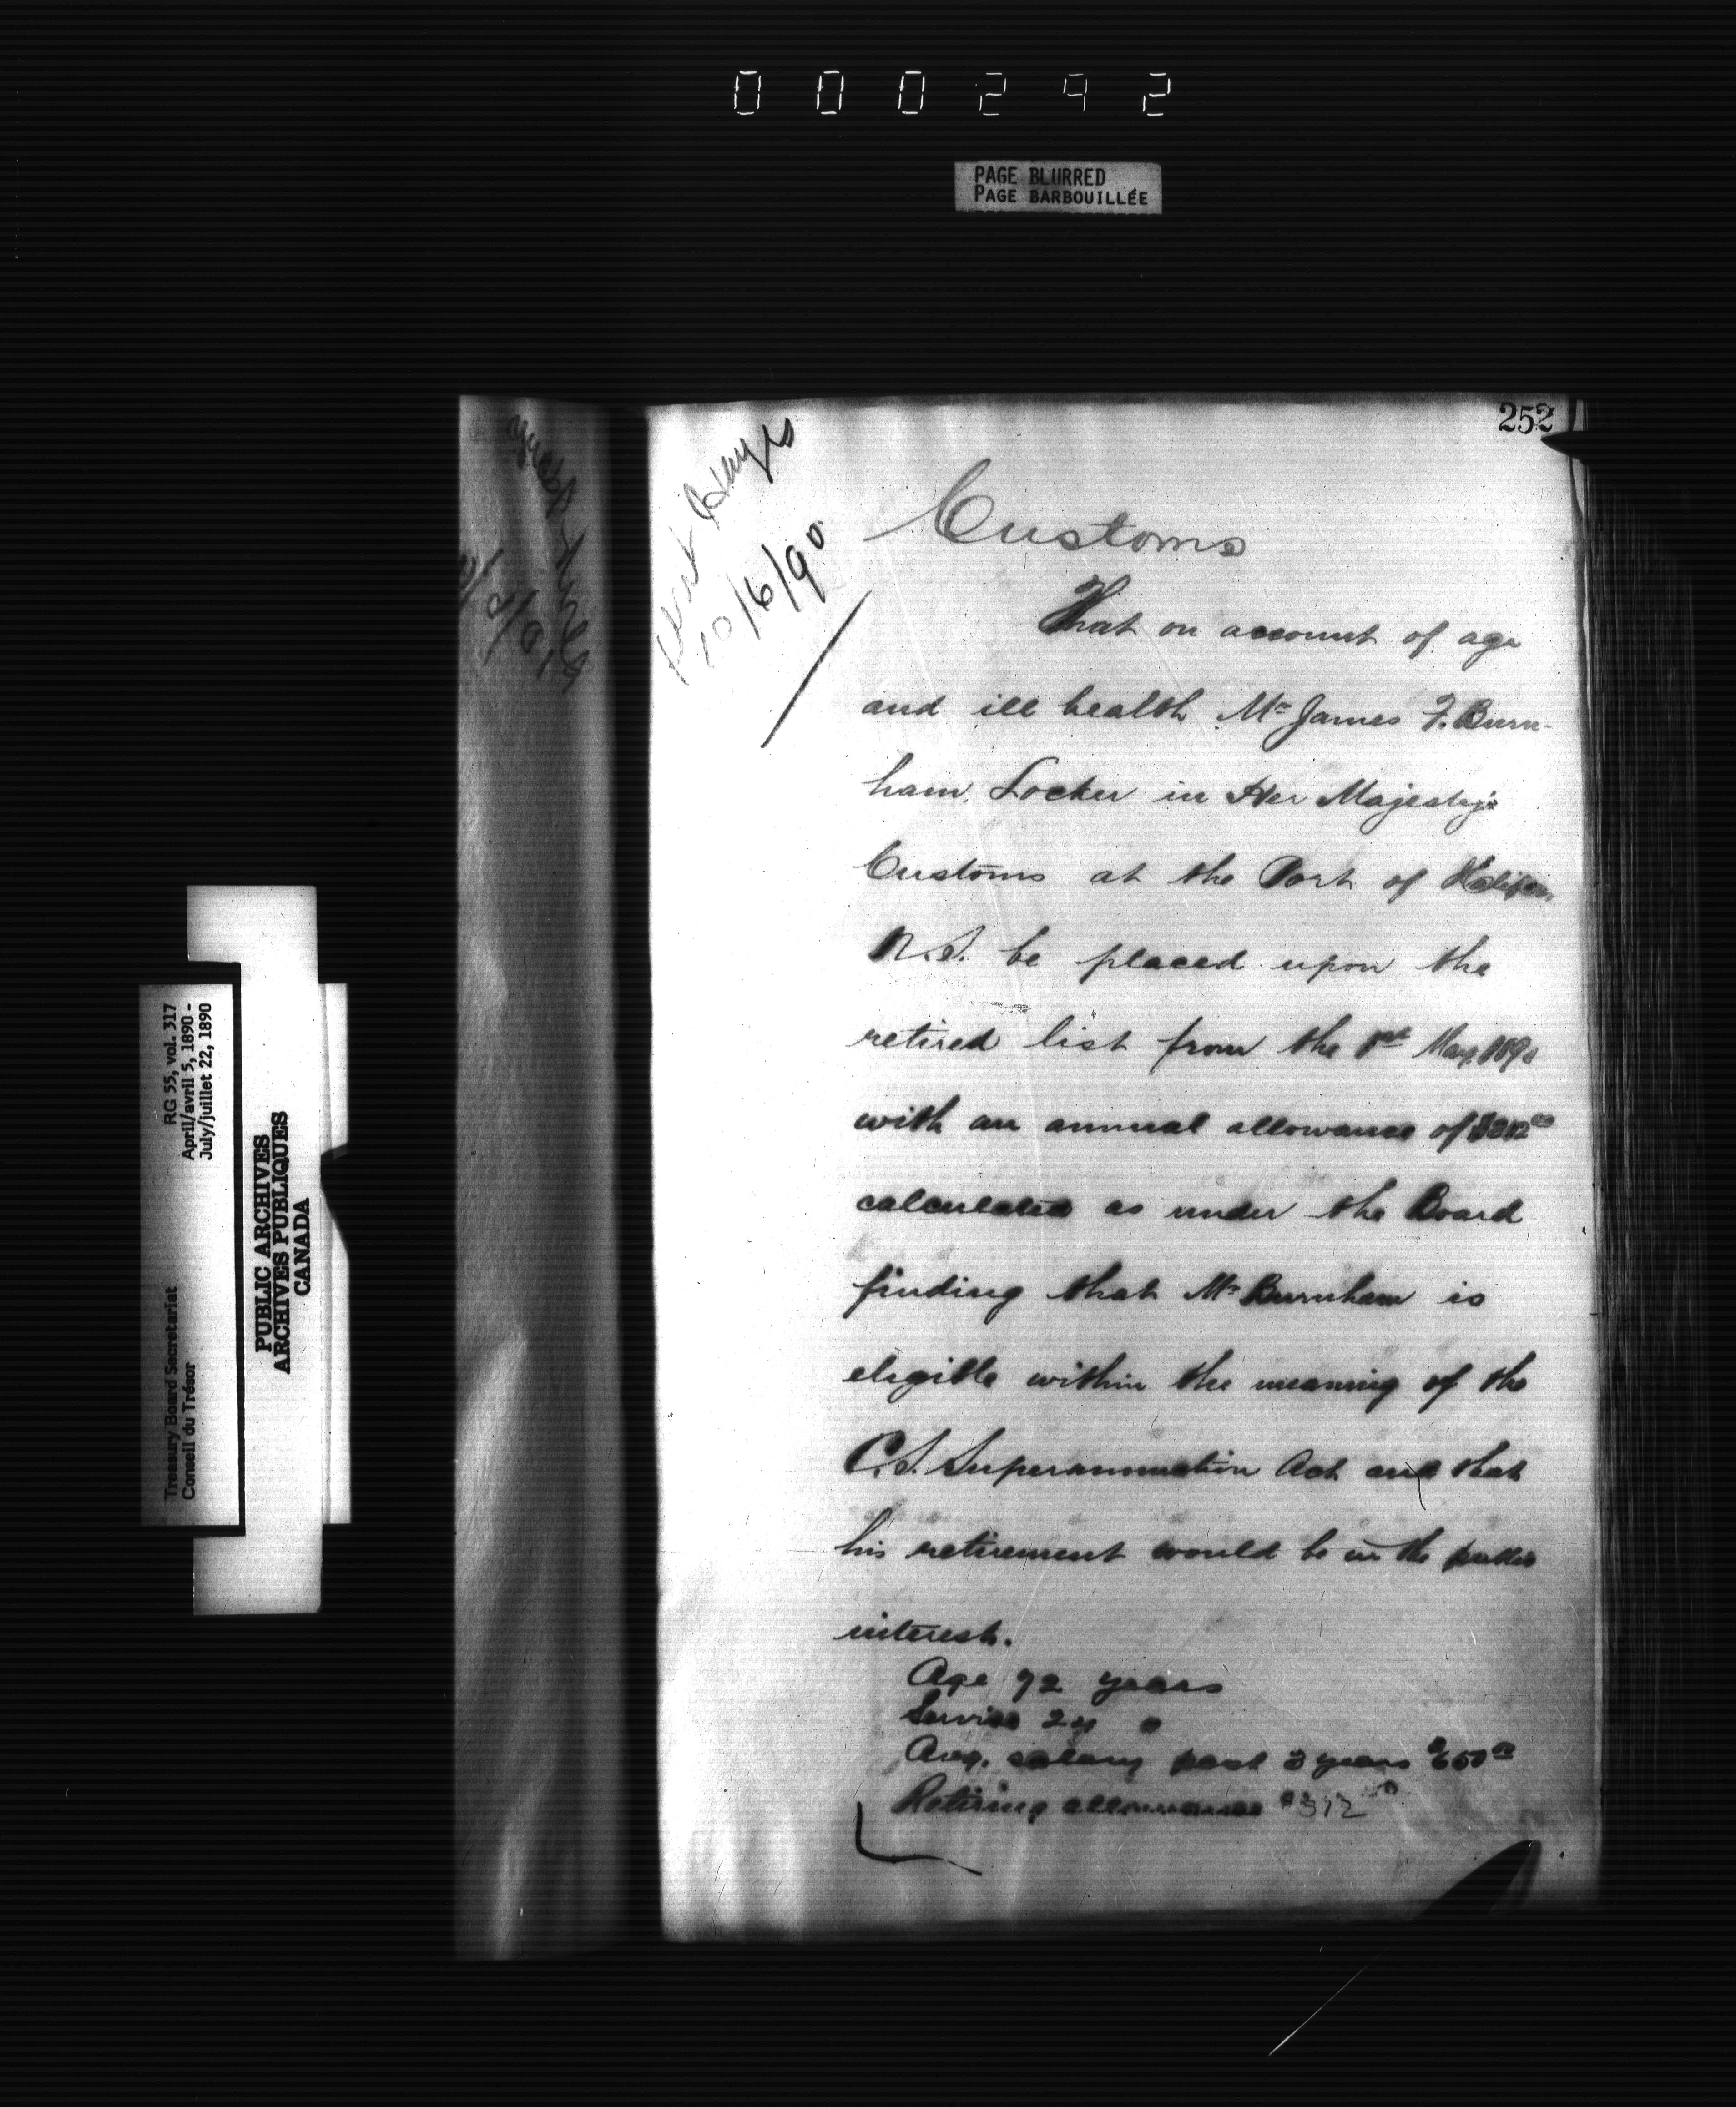 000292
PAGE BLURRED
PAGE BARBOUILLÉE
252
10/6/90
Customs
That on account of age
and ill health Mr James F. Burn-
ham, Locker in Her Majesty's
Customs at the Port of Halifax
N.S. be placed upon the
retired list from the 1st May, 1890
with an annual allowance of $312.00
calculated as under the Board
finding that Mr Burnham is
eligible within the meaning of the
C.S. Superannuation Act and that
his retirement would be in the public
interest.
Age 72 years
Service 24 "
Avg. salary past 3 years $650.00
Retiring allowance $312.00
Treasury Board Secretariat
Conseil du Trésor
RG 55, vol. 317
April/avril 5, 1890 -
July/juillet 22, 1890
PUBLIC ARCHIVES
ARCHIVES PUBLIQUES
CANADA